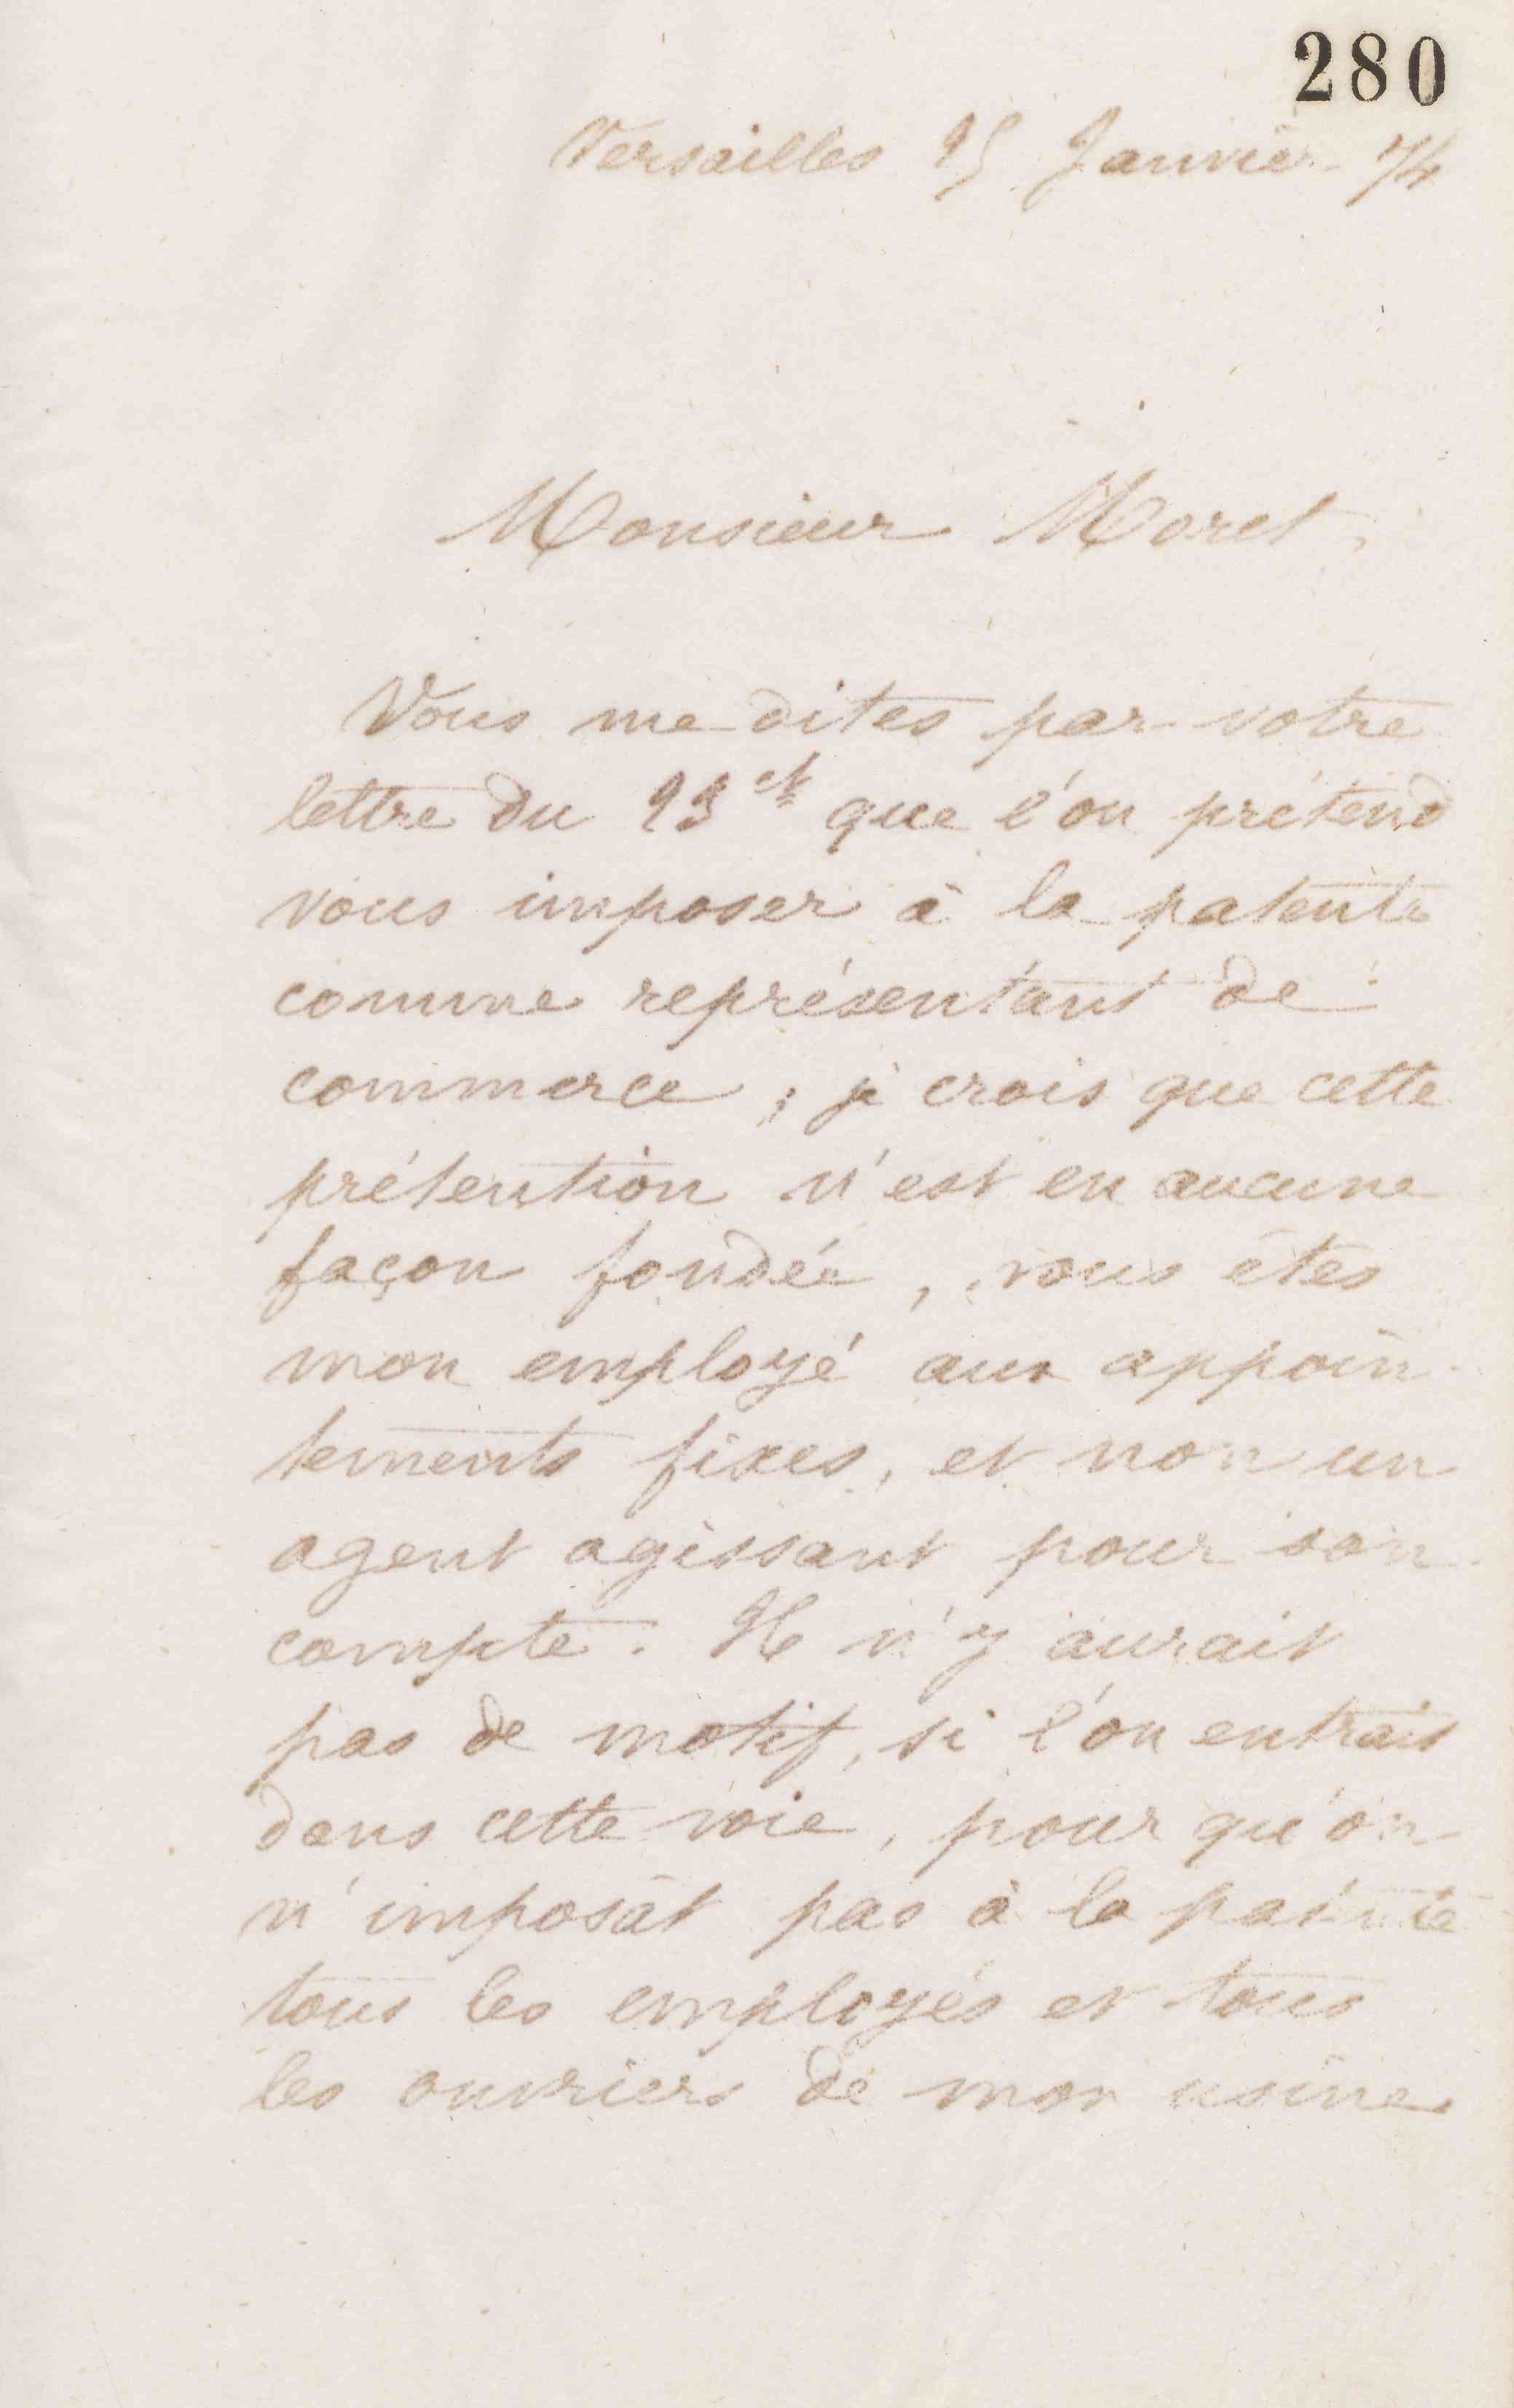 280
Versailles 25 Janvier 74
Monsieur Moret,
Vous me dites par votre
lettre du 23 ct que l'on prétend
vous imposer à la patente
comme représentant de
commerce ; je crois que cette
prétention n'est en aucune
façon fondée, vous êtes
mon employé aux appoin-
tements fixes, et non un
agent agissant pour son
compte. Il n'y aurait
pas de motif, si l'on entrait
dans cette voie, pour qu'on
n'imposât pas à la patente
tous les employés et tous
les ouvriers de mon usine.